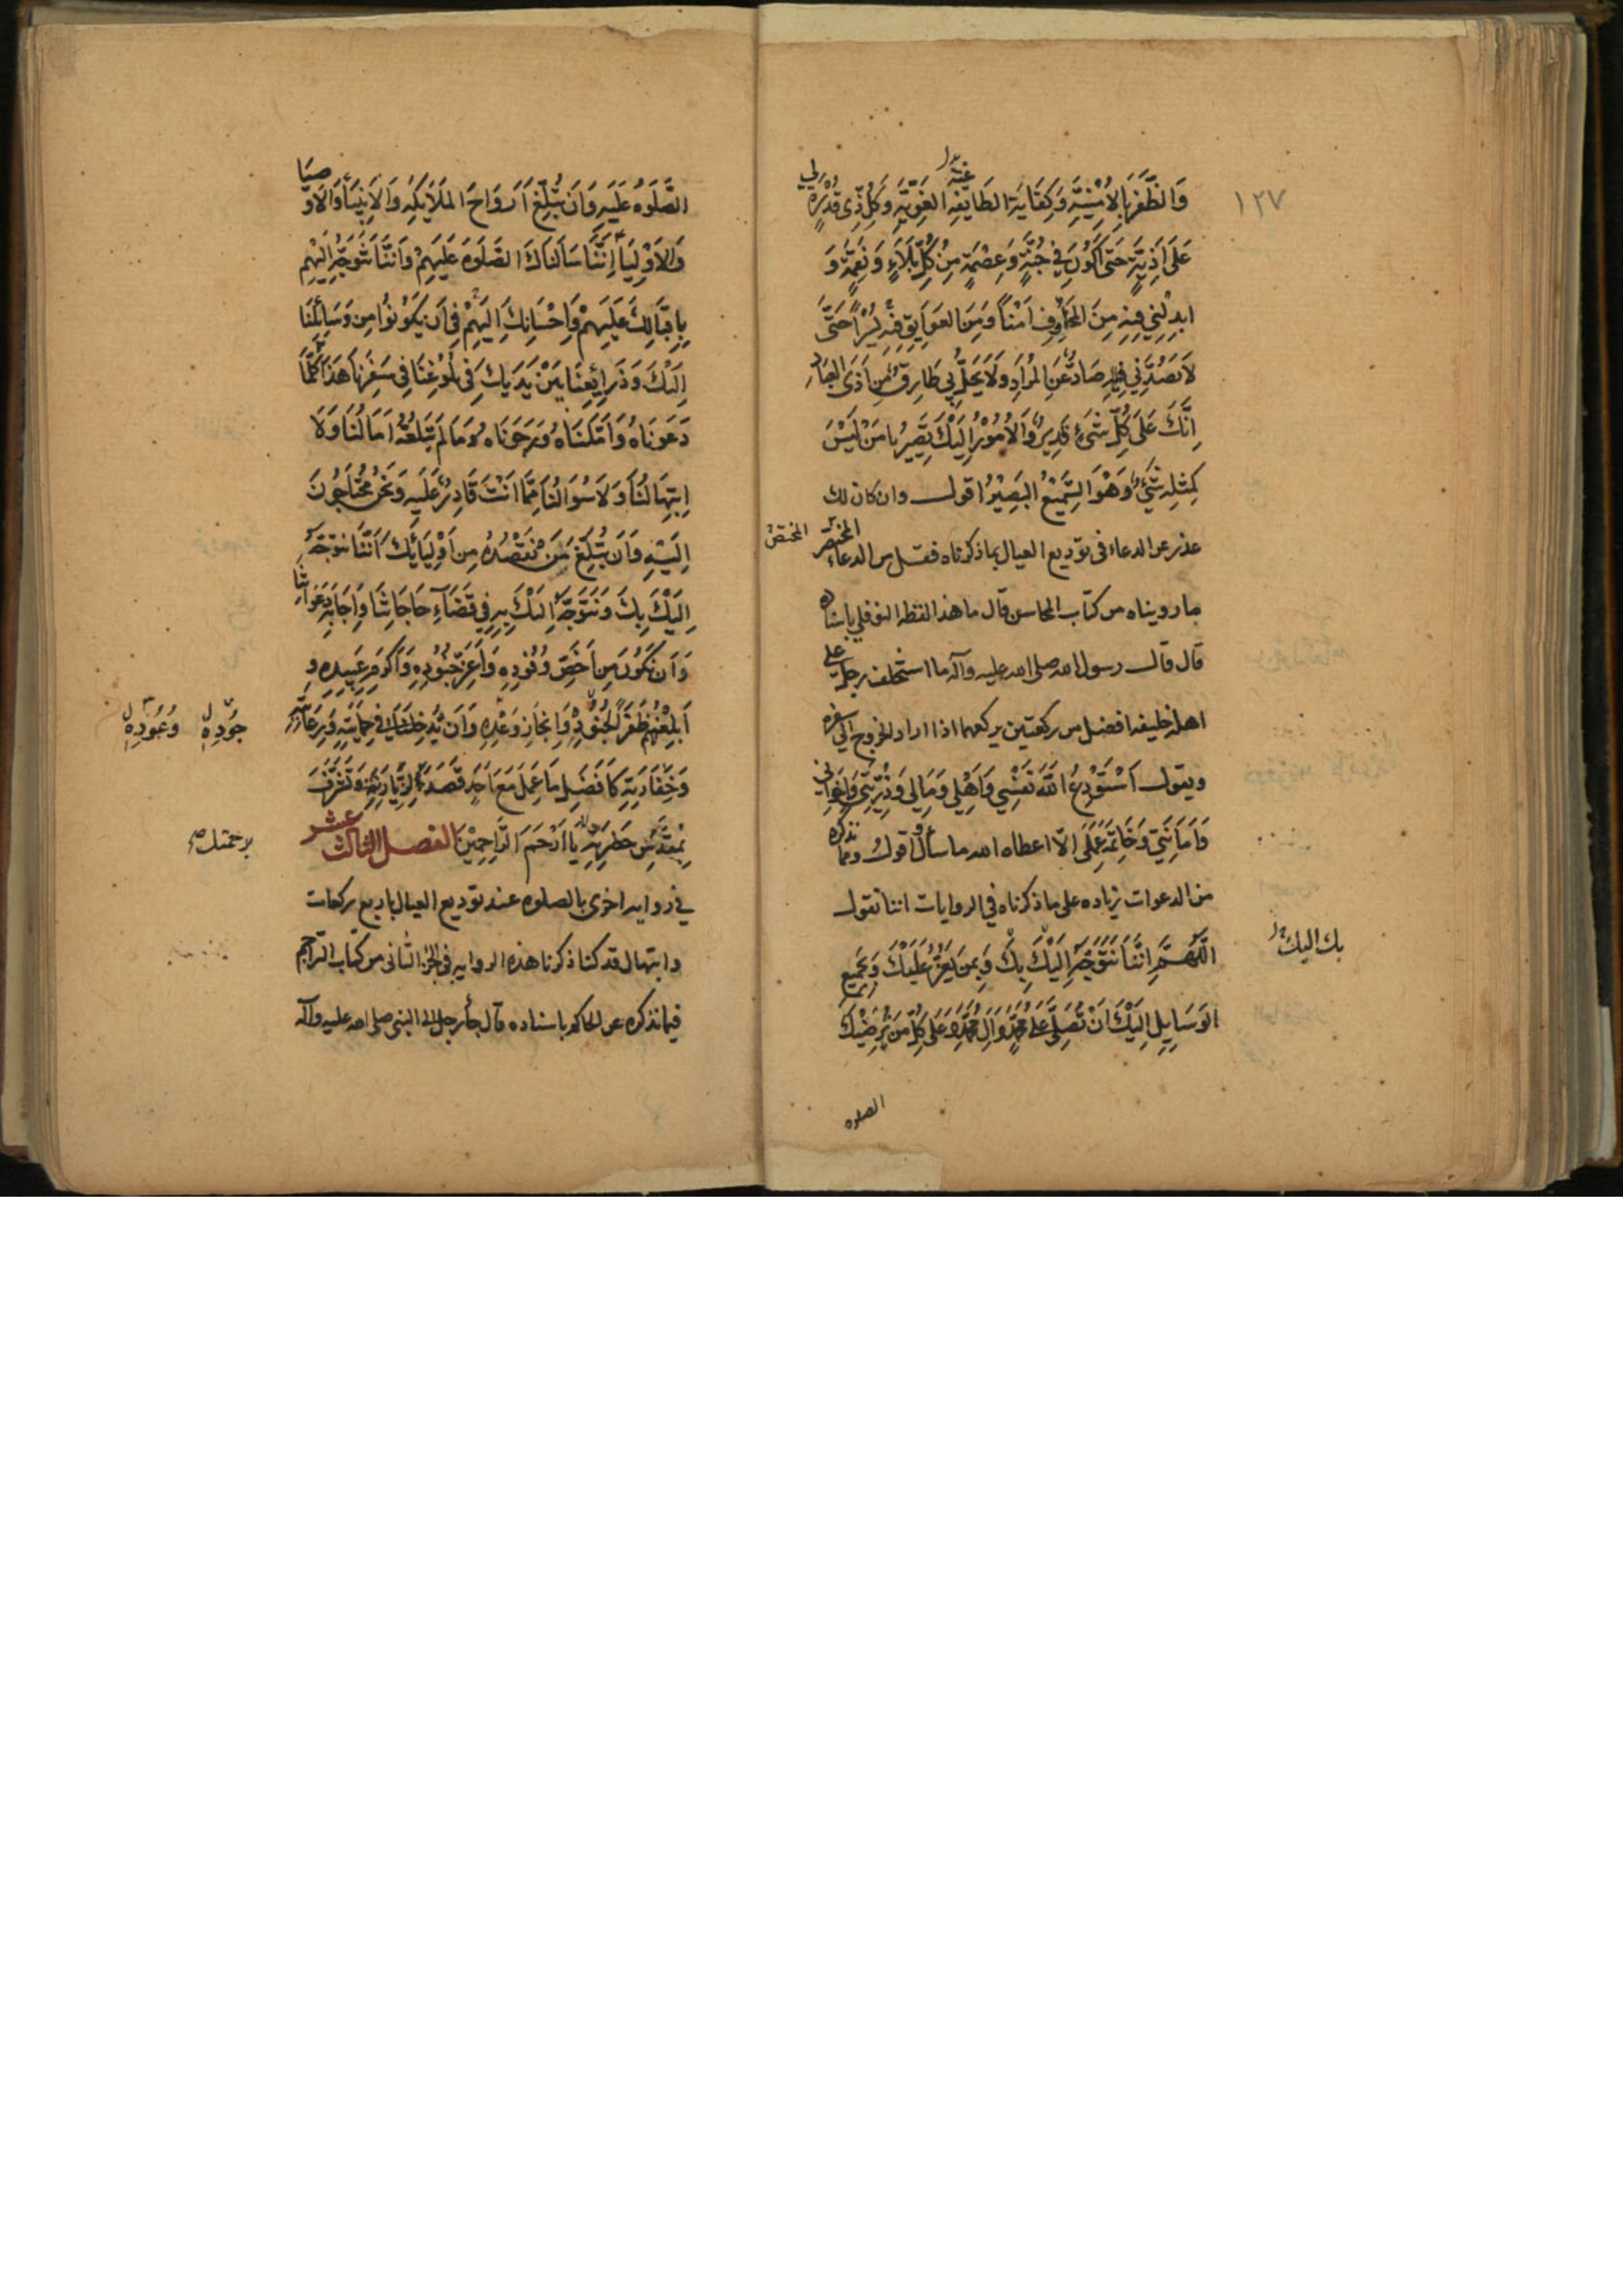 ١٢٧
وَالظَّفَرَ بِالأُمْنِيَّةِ وَكِفَايَةَ الطَّايِفَةِ الغَوِيَّةِ وَكُلِّ ذِي قُدْرَةٍ لِي
عَلَى أَذِيَّةٍ حَتَّى أَكُونَ فِي جُنَّةٍ وَعِصْمَةٍ مِنْ كُلِّ بَلَاءٍ وَنِقْمَةٍ وَ
ابدِلْنِي فِيهِ مِنَ المَخَاوِفِ اَمْنًا وَمِنَ العَوَايِقِ فِيهِ يُسْرًا حَتَّى
لَا يَصُدَّنِي صَادٌّ عَنِ المُرَادِ وَلَا يَحُلَّ بِي طَارِقٌ مِنْ اَذَى العِبَادِ
اِنَّكَ عَلَى كُلِّ شَيْءٍ قَدِيرٌ وَالأُمُوْرُ اِلَيْكَ تَصِيْرُ يَا مَنْ لَيْسَ
كَمِثْلِهِ شَيْءٌ وَهُوَ السَّمِيْعُ البَصِيْرُ اقول وان كان لك
عذر عن الدعاء في توديع العيال بما ذكرناه فقل من الدعاء المختصر
ما رويناه من كتاب المحاسن قال ما هذا لفظه النوفلي باسناده
قال قال رسول الله صلى الله عليه وآله ما استخلف رجل على
اهله خليفه افضل من ركعتين يركعهما اذا اراد الخروج الى سفره
ويقول اَسْتَوْدِعُ اللهَ نَفْسِي وَاَهْلِي وَمَالِي وَذُرِّيَّتِي وَاِخْوَانِي
وَاَمَانَتِي وَخَاتِمَةَ عَمَلِي الّا اعطاه الله ما سأل اقول ومما نذكره
من الدعوات زياده على ما ذكرناه في الروايات اننا نقول
اللَّهُمَّ اِنَّنَا نَتَوَجَّهُ اِلَيْكَ بِكَ وَبِمَنْ يَعِزُّ عَلَيْكَ وَبِجَمِيعِ
بك اليك
الوَسَايِلِ اِلَيْكَ اَنْ تُصَلِّيَ عَلَى مُحَمَّدٍ وَآلِ مُحَمَّدٍ وَعَلَى كُلِّ مَنْ يُرْضِيْكَ
الصلوه
الصَّلَوةُ عَلَيْهِ وَاَنْ تُبَلِّغَ اَرْوَاحَ المَلَائِكَةِ وَالاَنْبِيَاءِ وَالاَوْصِيَا
وَالاَوْلِيَاءِ اِنَّنَا سَأَلْنَاكَ الصَّلَوةَ عَلَيْهِمْ وَاَنَّنَا نَتَوَجَّهُ اِلَيْهِم
بِاِقْبَالِكَ عَلَيْهِمْ وَاِحْسَانِكَ اِلَيْهِمْ فِي اَنْ يَكُوْنُوا مِنْ وَسَائِلِنَا
اِلَيْكَ وَذَرَائِعِنَا بَيْنَ يَدَيْكَ فِي بُلُوْغِنَا فِي سَفَرِنَا هَذَا كُلَّمَا
دَعَوْنَاهُ وَاَمَّلْنَاهُ وَرَجَوْنَاهُ وَمَا لَمْ تَبْلُغْهُ آمَالُنَا وَلَا
اِبْتِهَالُنَا وَلَا سُؤَالُنَا مِمَّا اَنْتَ قَادِرٌ عَلَيْهِ وَنَحْنُ مُحْتَاجُونَ
اِلَيْهِ وَاَنْ تُبَلِّغَ مَنْ نَقْصُدُهُ مِنْ اَوْلِيَائِكَ اَنَّنَا نتوَجَّهُ
اِلَيْكَ بِكَ وَنَتَوَجَّهُ اِلَيْكَ بِهِ فِي قَضَاءِ حَاجَاتِنَا وَاِجَابَةِ دَعَوَاتِنَا
وَاَنْ نَكُونَ مِنْ اَخَصِّ وُفُودِهِ وَاَعَزِّ جُنُودِهِ وَاَكْرَمِ عَبِيدِهِ و
اَبْلَغِهِمْ ظَفَرًا وَاِنْجَازِ وَعْدِهِ وَاَنْ يُدْخِلَنَا فِي حِمَايَتِهِ وَرِعَايَتِهِ
جُوْدِهِ وُعُوْدِهِ
وَخَفَارَتِهِ كَاَفْضَلِ مَا عَمِلَ مَعَ اَحَدٍ قَصَدَ لِزِيَارَتِهِ وَتَشَرَّفَ
بِمُقَدَّسِ حَضْرَتِهِ يَا اَرْحَمَ الرَّاحِمِيْنَ الفصل الثالث عشر
برحمتك
في روايه اخرى بالصلوه عند توديع العيال باربع ركعات
وابتهال قد كنا ذكرنا هذه الروايه في الجزء الثانى من كتاب التراجم
فيما نذكره عن الحاكم باسناده قال جاء رجل الى النبي صلى الله عليه وآله